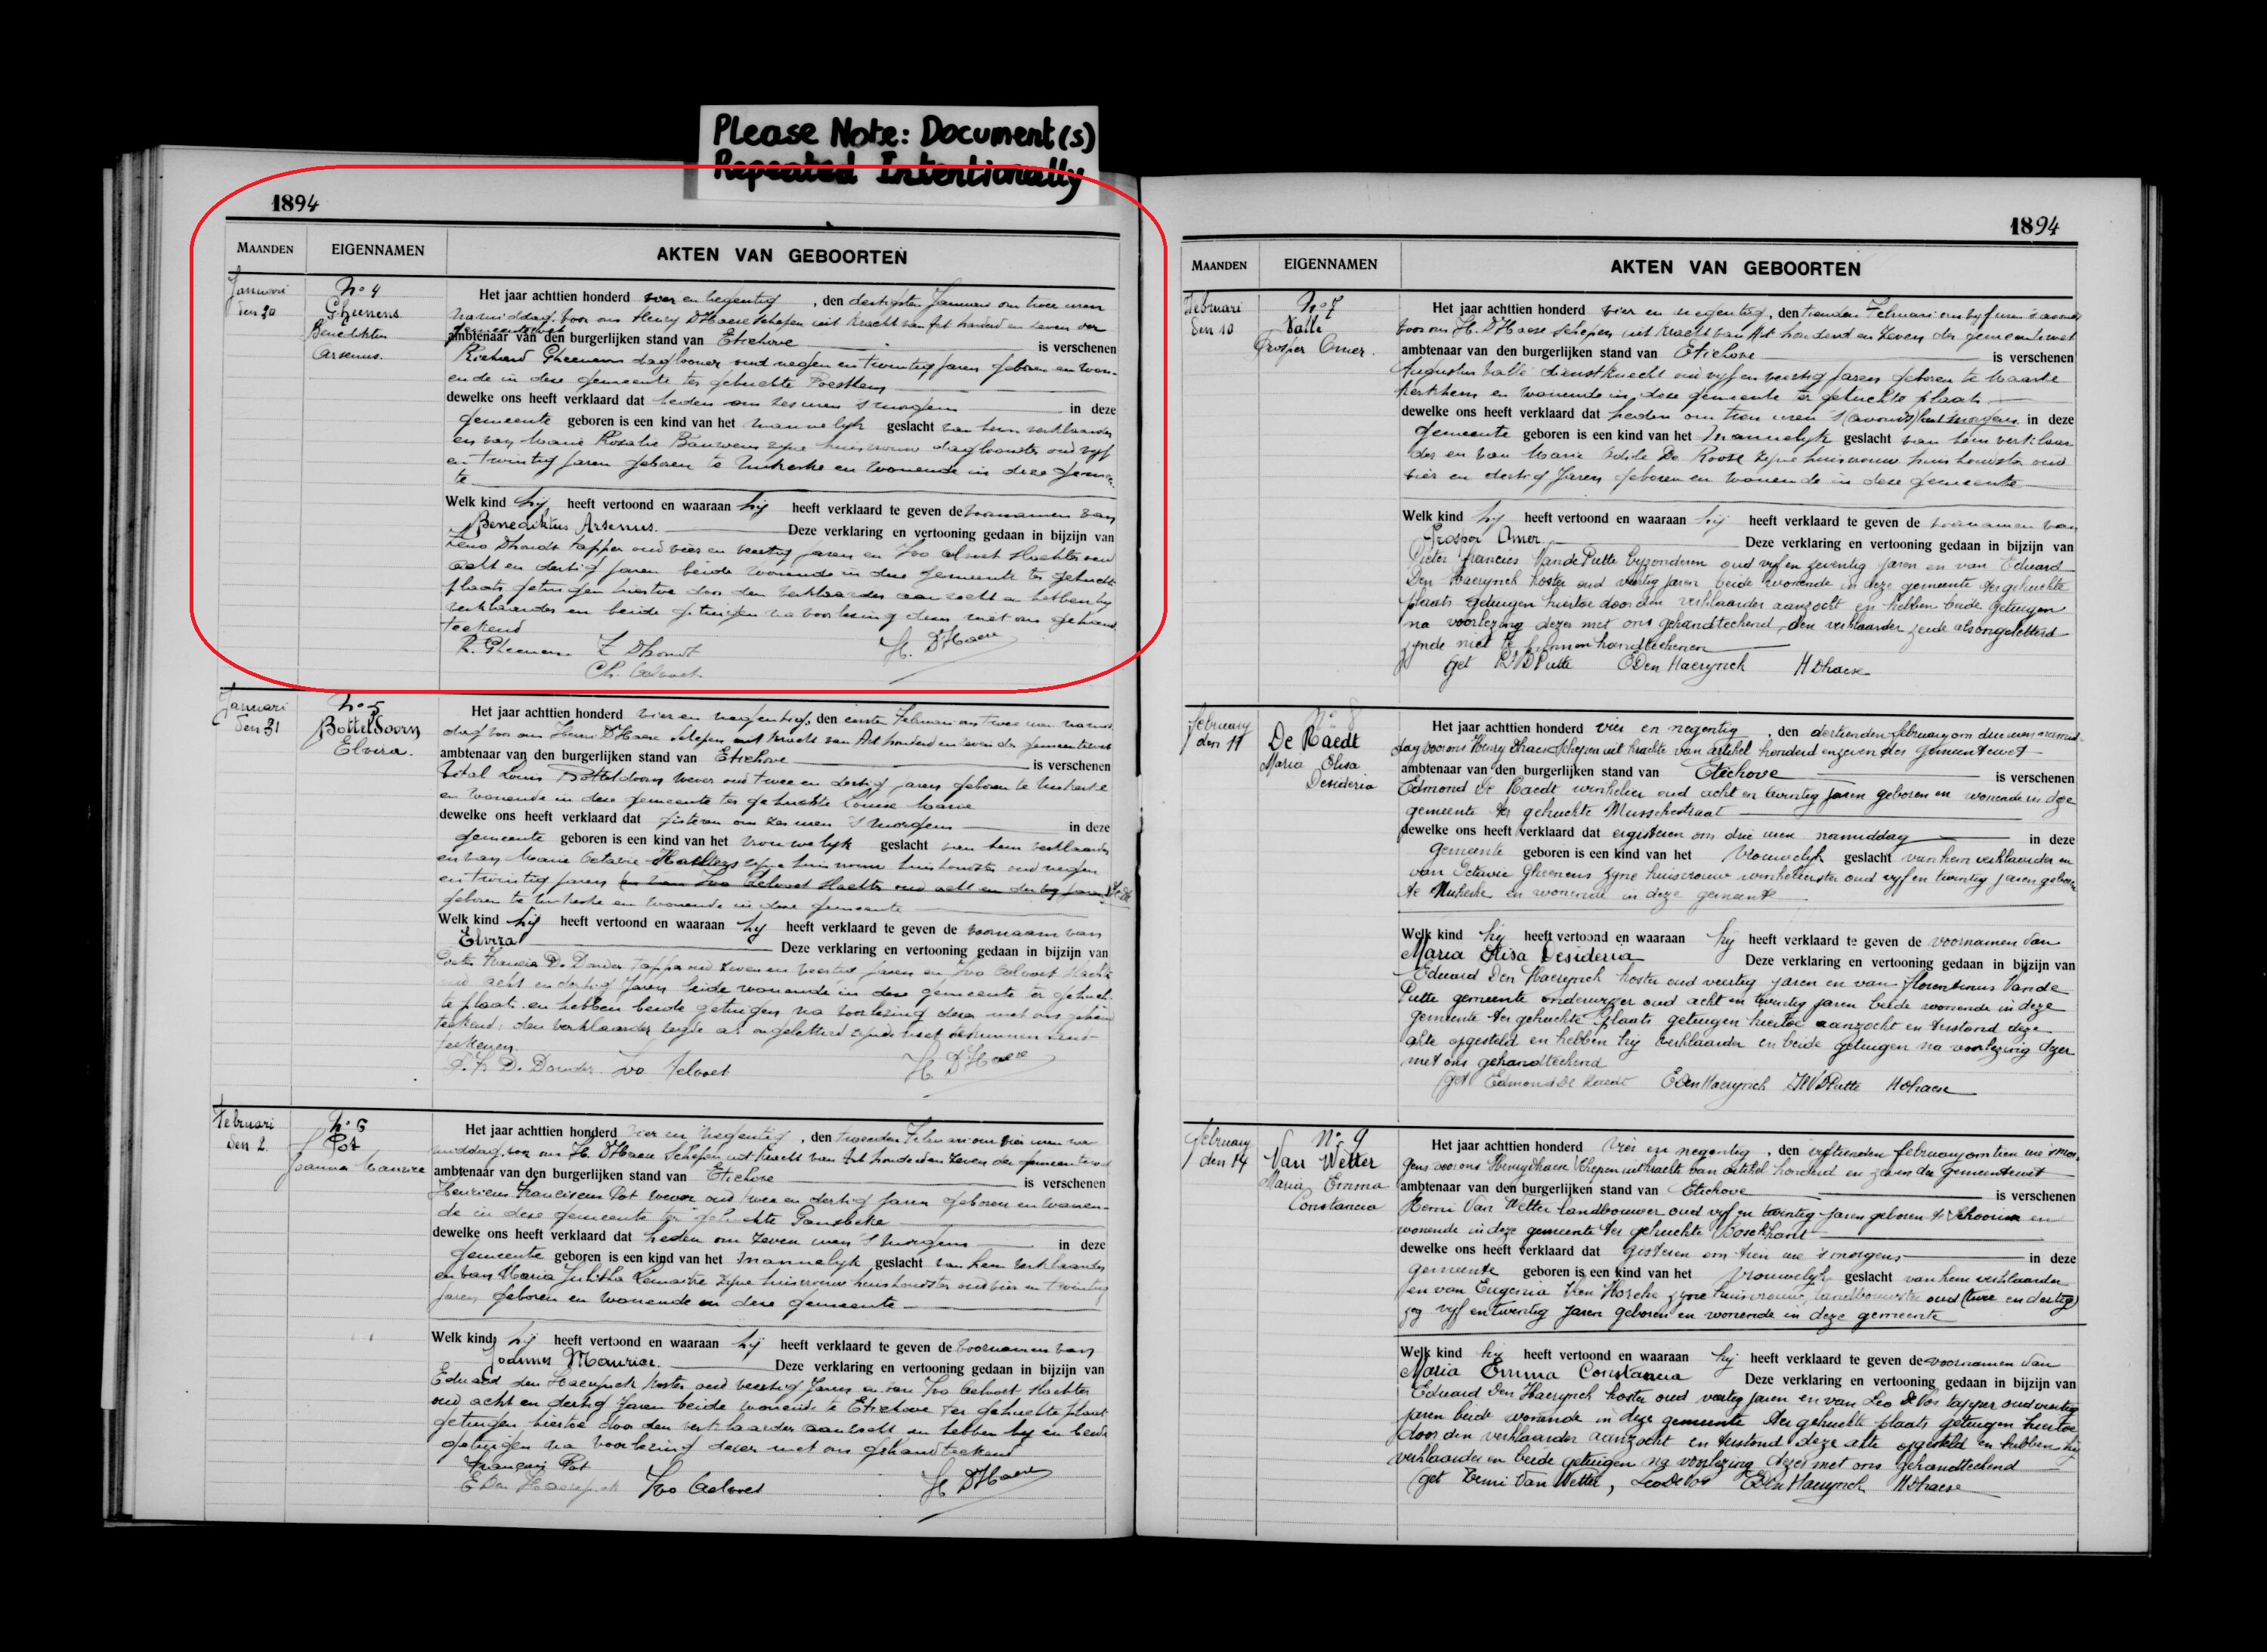 Please Note: Document(s)
Repeated Intentionally
1894
MAANDEN EIGENNAMEN AKTEN VAN GEBOORTEN
Januari
den 30
No 4
Gheenens
Benediktus
Arsenus.
Het jaar achttien honderd vier en negentig, den dertigsten Januari om twee uren
namiddag voor ons Henry DHaese schepen uit kracht van Art honderd en zeven der
gemeentewet
ambtenaar van den burgerlijken stand van Etichove is verschenen
Richard Gheenens daglooner oud negen en twintig jaren geboren en won-
ende in deze gemeente ter gehuchte
dewelke ons heeft verklaard dat heden om zes uren 's morgens in deze
gemeente geboren is een kind van het mannelijk geslacht van hem verklaarder
en van Marie Rosalie Bauwens zijne huisvrouw dagloonster oud vijf
en twintig jaren geboren te Nukerke en wonende in deze gemeen-
te
Welk kind hij heeft vertoond en waaraan hij heeft verklaard te geven de voornamen van
Benediktus Arsenus. Deze verklaring en vertooning gedaan in bijzijn van
Dhondt tapper oud vier en veertig jaren en Ivo Aelvoet slachter oud
acht en dertig jaren beide wonende in deze gemeente ter gehuchte
plaats getuigen hiertoe door den verklaarder aanzocht en hebben hij
verklaarder en beide getuigen na voorlezing dezes met ons gehand
teekend
R. Gheenens Z Dhondt H. DHaese
Aelvoet
Januari
den 31
No 5
Botteldoorn
Elvira.
Het jaar achttien honderd vier en negentig, den eersten Februari om twee uren namid
dag voor ons Henri DHaese schepen uit kracht van Art honderd en zeven der gemeentewet
ambtenaar van den burgerlijken stand van Etichove is verschenen
Vital Louis Botteldoorn wever oud twee en dertig jaren geboren te Nukerke
en wonende in deze gemeente ter gehuchte Louise Marie
dewelke ons heeft verklaard dat gisteren om zes uren 's morgens in deze
gemeente geboren is een kind van het vrouwelijk geslacht van hem verklaarder
en van Marie Octavie zijne huisvrouw huishoudster oud negen
en twintig jaren (en van Ivo Aelvoet slachter oud acht en dertig jaren)
geboren te Nukerke en wonende in deze gemeente
Welk kind hij heeft vertoond en waaraan hij heeft verklaard te geven de voornaam van
Elvira Deze verklaring en vertooning gedaan in bijzijn van
Francis De Donder tapper oud zeven en veertig jaren en Ivo Aelvoet slachter
oud acht en dertig jaren beide wonende in deze gemeente ter gehuch-
te plaats en hebben beide getuigen na voorlezing dezer met ons gehand
teekend; den verklaarder zegde als ongeletterd zijnde niet te kunnen hand-
teekenen.
P. F. De Donder Ivo Aelvoet H. DHaese
Februari
den 2.
No 6
Pot
Joannes Maurice
Het jaar achttien honderd vier en negentig, den tweeden Februari om vier uren na
middag voor ons H. DHaese Schepen uit kracht van Art honderd en zeven der gemeentewet
ambtenaar van den burgerlijken stand van Etichove is verschenen
Franciscus Pot wever oud twee en dertig jaren geboren en wonen-
de in deze gemeente ter gehuchte Gansbeke
dewelke ons heeft verklaard dat heden om zeven uren 's morgens in deze
gemeente geboren is een kind van het mannelyk geslacht van hem verklaarder
en van Maria Julitha Lemaitre zijne huisvrouw huishoudster oud vier en twintig
jaren geboren en wonende in deze gemeente
Welk kind hij heeft vertoond en waaraan hij heeft verklaard te geven de voornamen van
Joannes Maurice. Deze verklaring en vertooning gedaan in bijzijn van
Eduard den Haerynck koster oud veertig jaren en van Ivo Aelvoet slachter
oud acht en dertig jaren beide wonende te Etichove ter gehuchte plaats
getuigen hiertoe door den verklaarder aanzocht en hebben hij en beide
getuigen na voorlezing dezer met ons gehandteekend
François Pot
E Den Haerynck Ivo Aelvoet H DHaese
1894
MAANDEN EIGENNAMEN AKTEN VAN GEBOORTEN
Februari
den 10
No 7
Vallé
Prosper Omer.
Het jaar achttien honderd vier en negentig, den tienden Februari om vyf uren 's avonds
voor ons H. DHaese Schepen uit kracht van Art honderd en zeven der gemeentewet
ambtenaar van den burgerlijken stand van Etichove is verschenen
Augustus Vallé dienstknecht oud vyf en veertig jaren geboren te Maarke
kerkhem en wonende in deze gemeente ter gehuchte plaats
dewelke ons heeft verklaard dat heden om tien uren 's (avonds) in deze
gemeente geboren is een kind van het mannelyk geslacht van hem verklaar
der en van Marie Odile De Roose zijne huisvrouw huishoudster oud
vier en dertig jaren geboren en wonende in deze gemeente
Welk kind hij heeft vertoond en waaraan hij heeft verklaard te geven de voornamen van
Prosper Omer. Deze verklaring en vertooning gedaan in bijzijn van
Pieter Francies Vande Putte byzonderen oud vyf en zeventig jaren en van Eduard
Den Haerynck koster oud veertig jaren beide wonende in deze gemeente ter gehuchte
plaats getuigen hiertoe door den verklaarder aanzocht en hebben beide getuigen
na voorlezing dezes met ons gehandteekend, den verklaarder zeide als ongeletterd
zynde niet te kunnen handteekenen
get P.VDPutte EDen Haerynck H Dhaese
february
den 11
No 8
De Raedt
Maria Elisa
Desideria
Het jaar achttien honderd vier en negentig, den dertienden february om drie uren namid-
dag voor ons Henry Dhaese schepen uit krachte van artikel honderd en zeven der gemeentewet
ambtenaar van den burgerlijken stand van Etichove is verschenen
Edmond De Raedt winkelier oud acht en twintig jaren geboren en wonende in deze
gemeente ter gehuchte Musschestraat
dewelke ons heeft verklaard dat ergisteren om drie uren namiddag in deze
gemeente geboren is een kind van het vrouwelyk geslacht van hem verklaarder en
van Octavie Gheenens zyne huisvrouw winkelierster oud vyf en twintig jaren geboren
te Nukerke en wonende in deze gemeente
Welk kind hij heeft vertoond en waaraan hij heeft verklaard te geven de voornamen van
Maria Elisa Desideria Deze verklaring en vertooning gedaan in bijzijn van
Eduard Den Haerynck koster oud veertig jaren en van Florentinus Vande
Putte gemeente onderwyzer oud acht en twintig jaren beide wonende in deze
gemeente ter gehuchte plaats getuigen hiertoe aanzocht en terstond deze
akte opgesteld en hebben hy verklaarder en beide getuigen na voorlezing dezer
met ons gehandteekend
get Edmond De Raedt EDen Haerynck VDPutte H Dhaese
february
den 14
No 9
Van Wetter
Maria Emma
Constancia
Het jaar achttien honderd vier en negentig, den vyftienden february om tien ure 's mor-
gens voor ons Henry dhaese schepen uit kracht van artikel honderd en zeven der Gemeentewet
ambtenaar van den burgerlijken stand van Etichove is verschenen
Remi Van Wetter landbouwer oud vyf en twintig jaren geboren te Schoorisse en
wonende in deze gemeente ter gehuchte Bosschkant
dewelke ons heeft verklaard dat gisteren om tien ure 's morgens in deze
gemeente geboren is een kind van het vrouwelyk geslacht van hem verklaarder
en van Eugenia Van zyne huisvrouw landbouwster oud (twee en dertig)
zeg vyf en twintig jaren geboren en wonende in deze gemeente
Welk kind hij heeft vertoond en waaraan hij heeft verklaard te geven de voornamen van
Maria Emma Constancia Deze verklaring en vertooning gedaan in bijzijn van
Eduard Den Haerynck koster oud veertig jaren en van Leo De Vos tapper oud veertig
jaren beide wonende in deze gemeente ter gehuchte plaats getuigen hiertoe
door den verklaarder aanzocht en terstond deze akte opgesteld en hebben hy
verklaarder en beide getuigen na voorlezing dezes met ons gehandteekend
get Remi Van Wetter, Leo De Vos EDen Haerynck H Dhaese